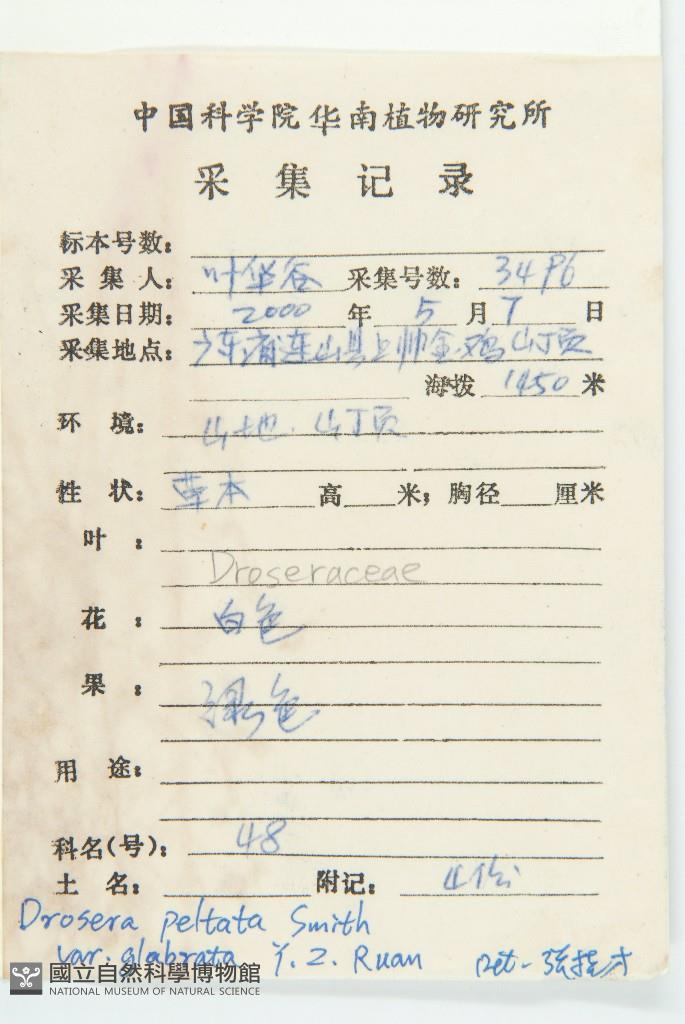 中国科学院华南植物研究所
采集记录
标本号数:
采集人: 叶华谷 采集号数: 3496
采集日期: 2000 年 5 月 7 日
采集地点: 广东省连山县上帅金鸡山顶
海拨 1450 米
环境: 山地.山顶
性状: 草本 高 米; 胸径 厘米
叶:
Droseraceae
花: 白色
果: 绿色
用途:
科名(号): 48
土名: 附记: 4份
Drosera peltata Smith
var. glabrata Y. Z. Ruan Det.
國立自然科學博物館
NATIONAL MUSEUM OF NATURAL SCIENCE